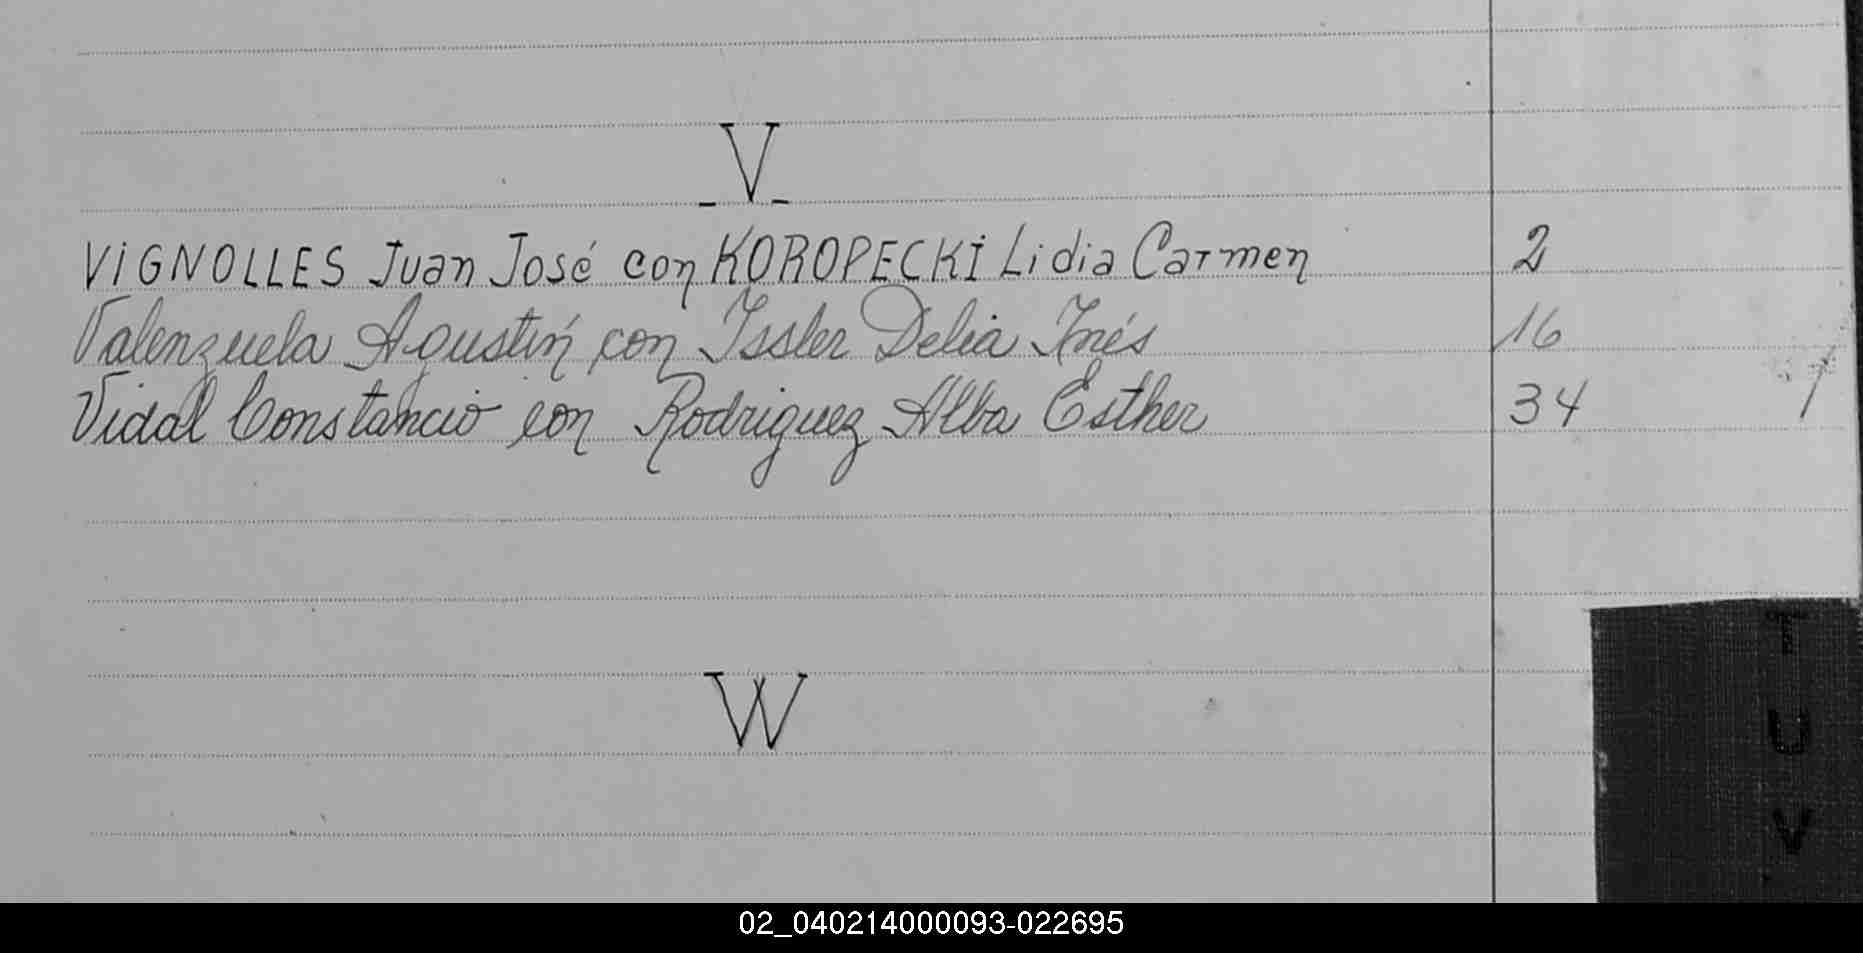 V
VIGNOLLES Juan José con KOROPECKI Lidia Carmen 2
Valenzuela Agustín con Issler Delia Inés 16
Vidal Constancio con Rodriguez Alba Esther 34
W
T
U
V
02_040214000093-022695